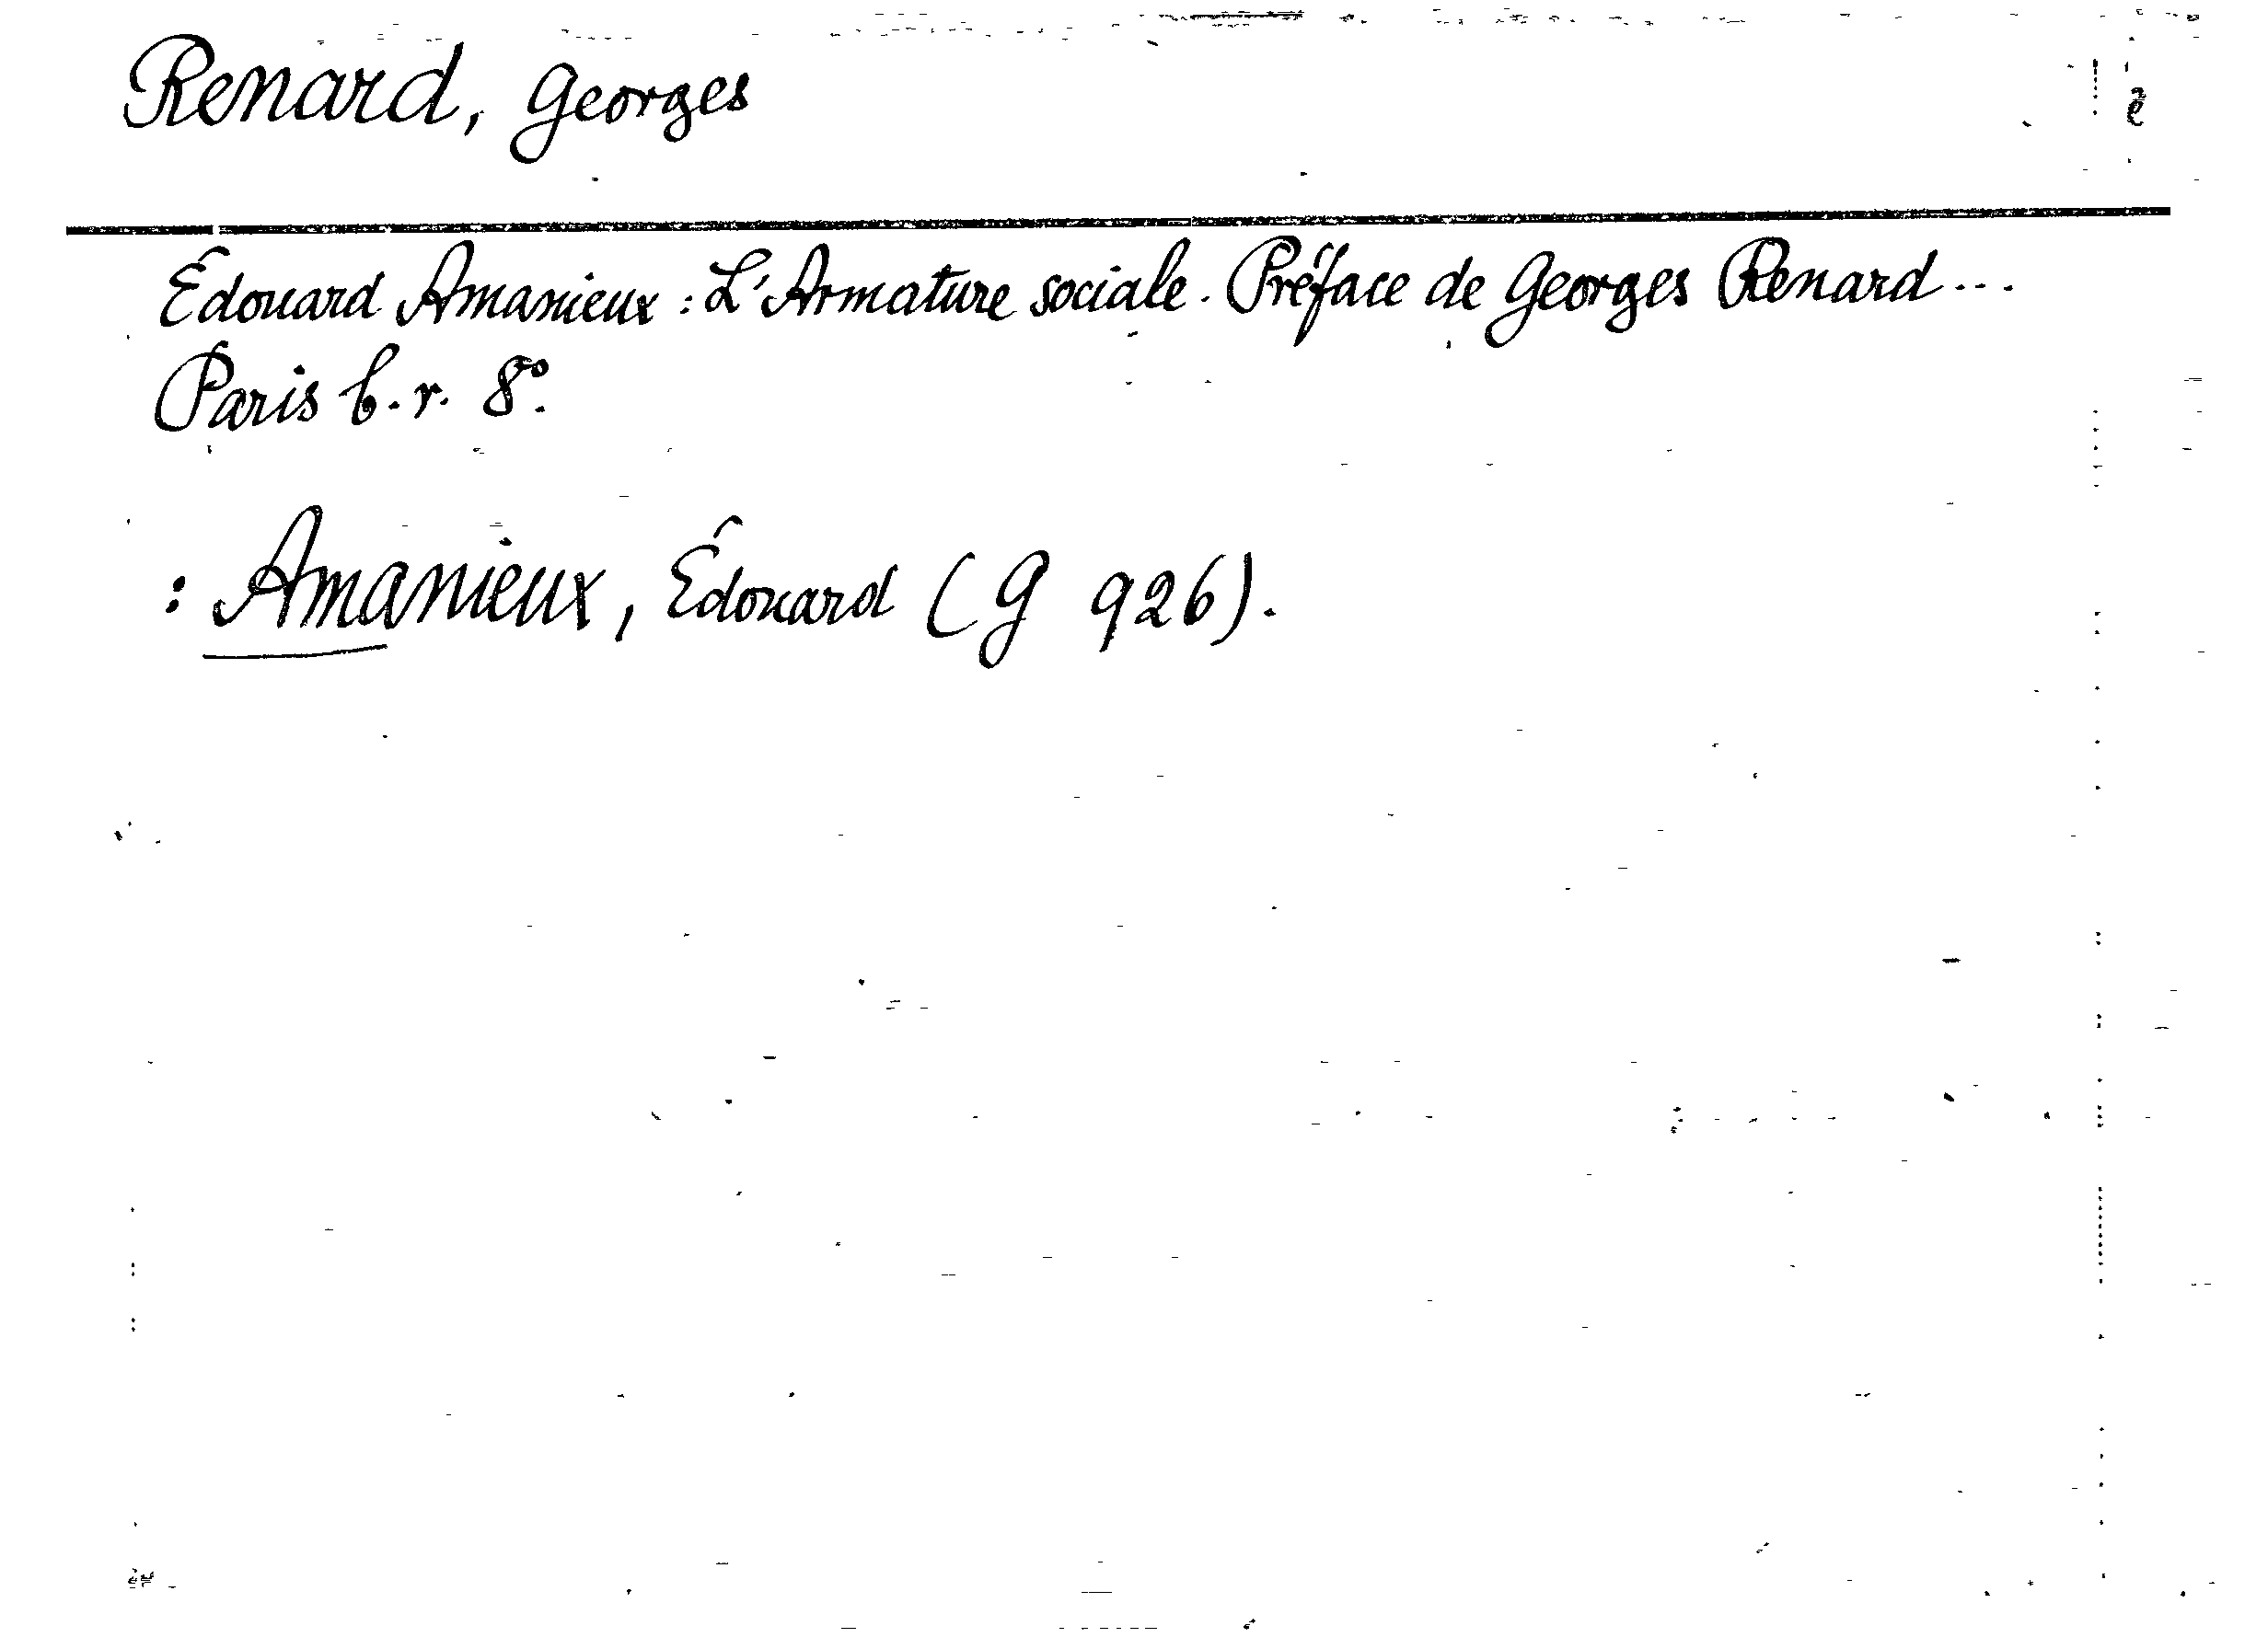 Renard, Georges
Édouard Amanieux: L'Armature sociale. Préface de Georges Renard...
Paris b. r. 8°.
: Amanieux, Édouard (G 926).